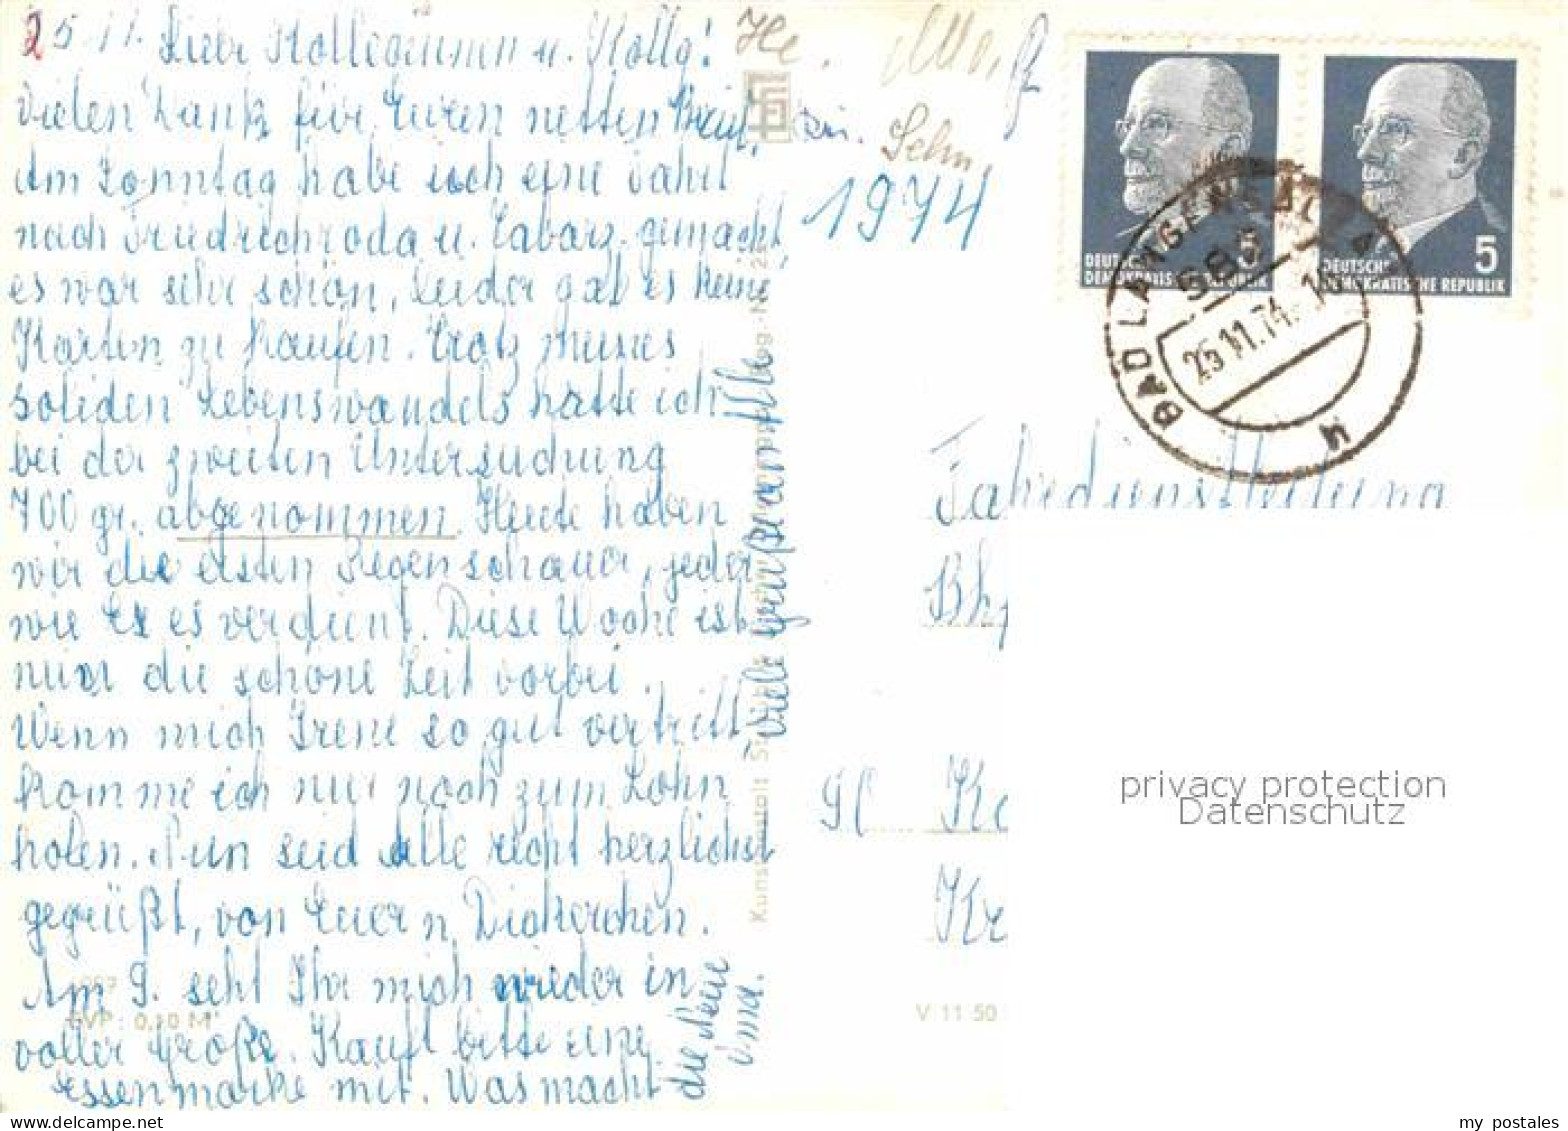 25.11.
Liebe Kolleginnen u. Kollg!
Vielen Dank für Euren netten Brief.
Am Sonntag habe ich eine Fahrt
nach Friedrichroda u. Tabarz gemacht
es war sehr schön, leider gab es keine
Karten zu kaufen. Trotz meines
soliden Lebenswandels hatte ich
bei der zweiten Untersuchung
700 gr. abgenommen. Heute haben
wir die ersten Regenschauer, jeder
wie Er es verdient. Diese Woche ist
nun die schöne Zeit vorbei.
Wenn mich Irene so gut vertritt,
komme ich nur noch zum Lohn
holen. Nun seid Alle recht herzlichst
gegrüßt, von Euern
Am 9. seht Ihr mich wieder in
voller Größe. Kauft bitte eine
Essenmarke mit. Was macht
die Neue
Viele Grüße an
EVP: 0,10 M
V 11 50
Kunstanstalt
He.
Sehm
1974
DEUTSCHE
DEMOKRATISCHE REPUBLIK
5
DEUTSCHE
DEMOKRATISCHE REPUBLIK
5
BAD LANGENSALZA
25.11.74
Fahrdienstleitung
Bhf
Kr
privacy protection
Datenschutz
my postales